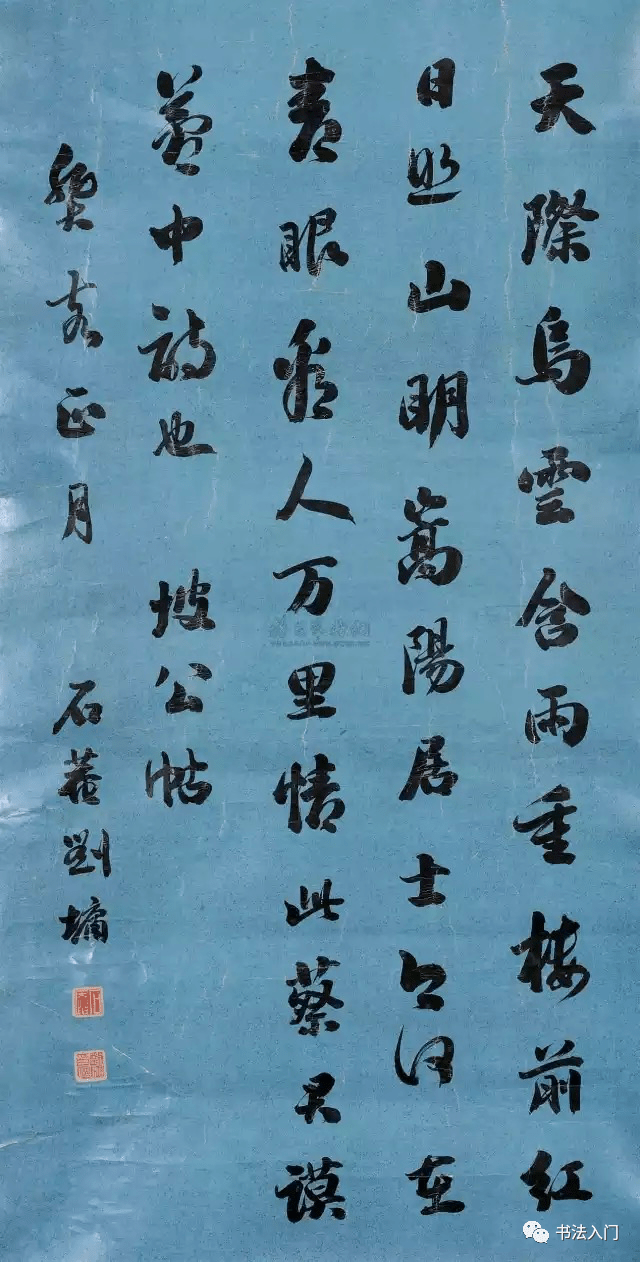 天際烏雲含雨重樓前紅
日照山明嵩陽居士今何在
青眼看人万里情此蔡君謨
夢中詩也 坡公帖
癸亥正月 石菴劉墉
书法入门